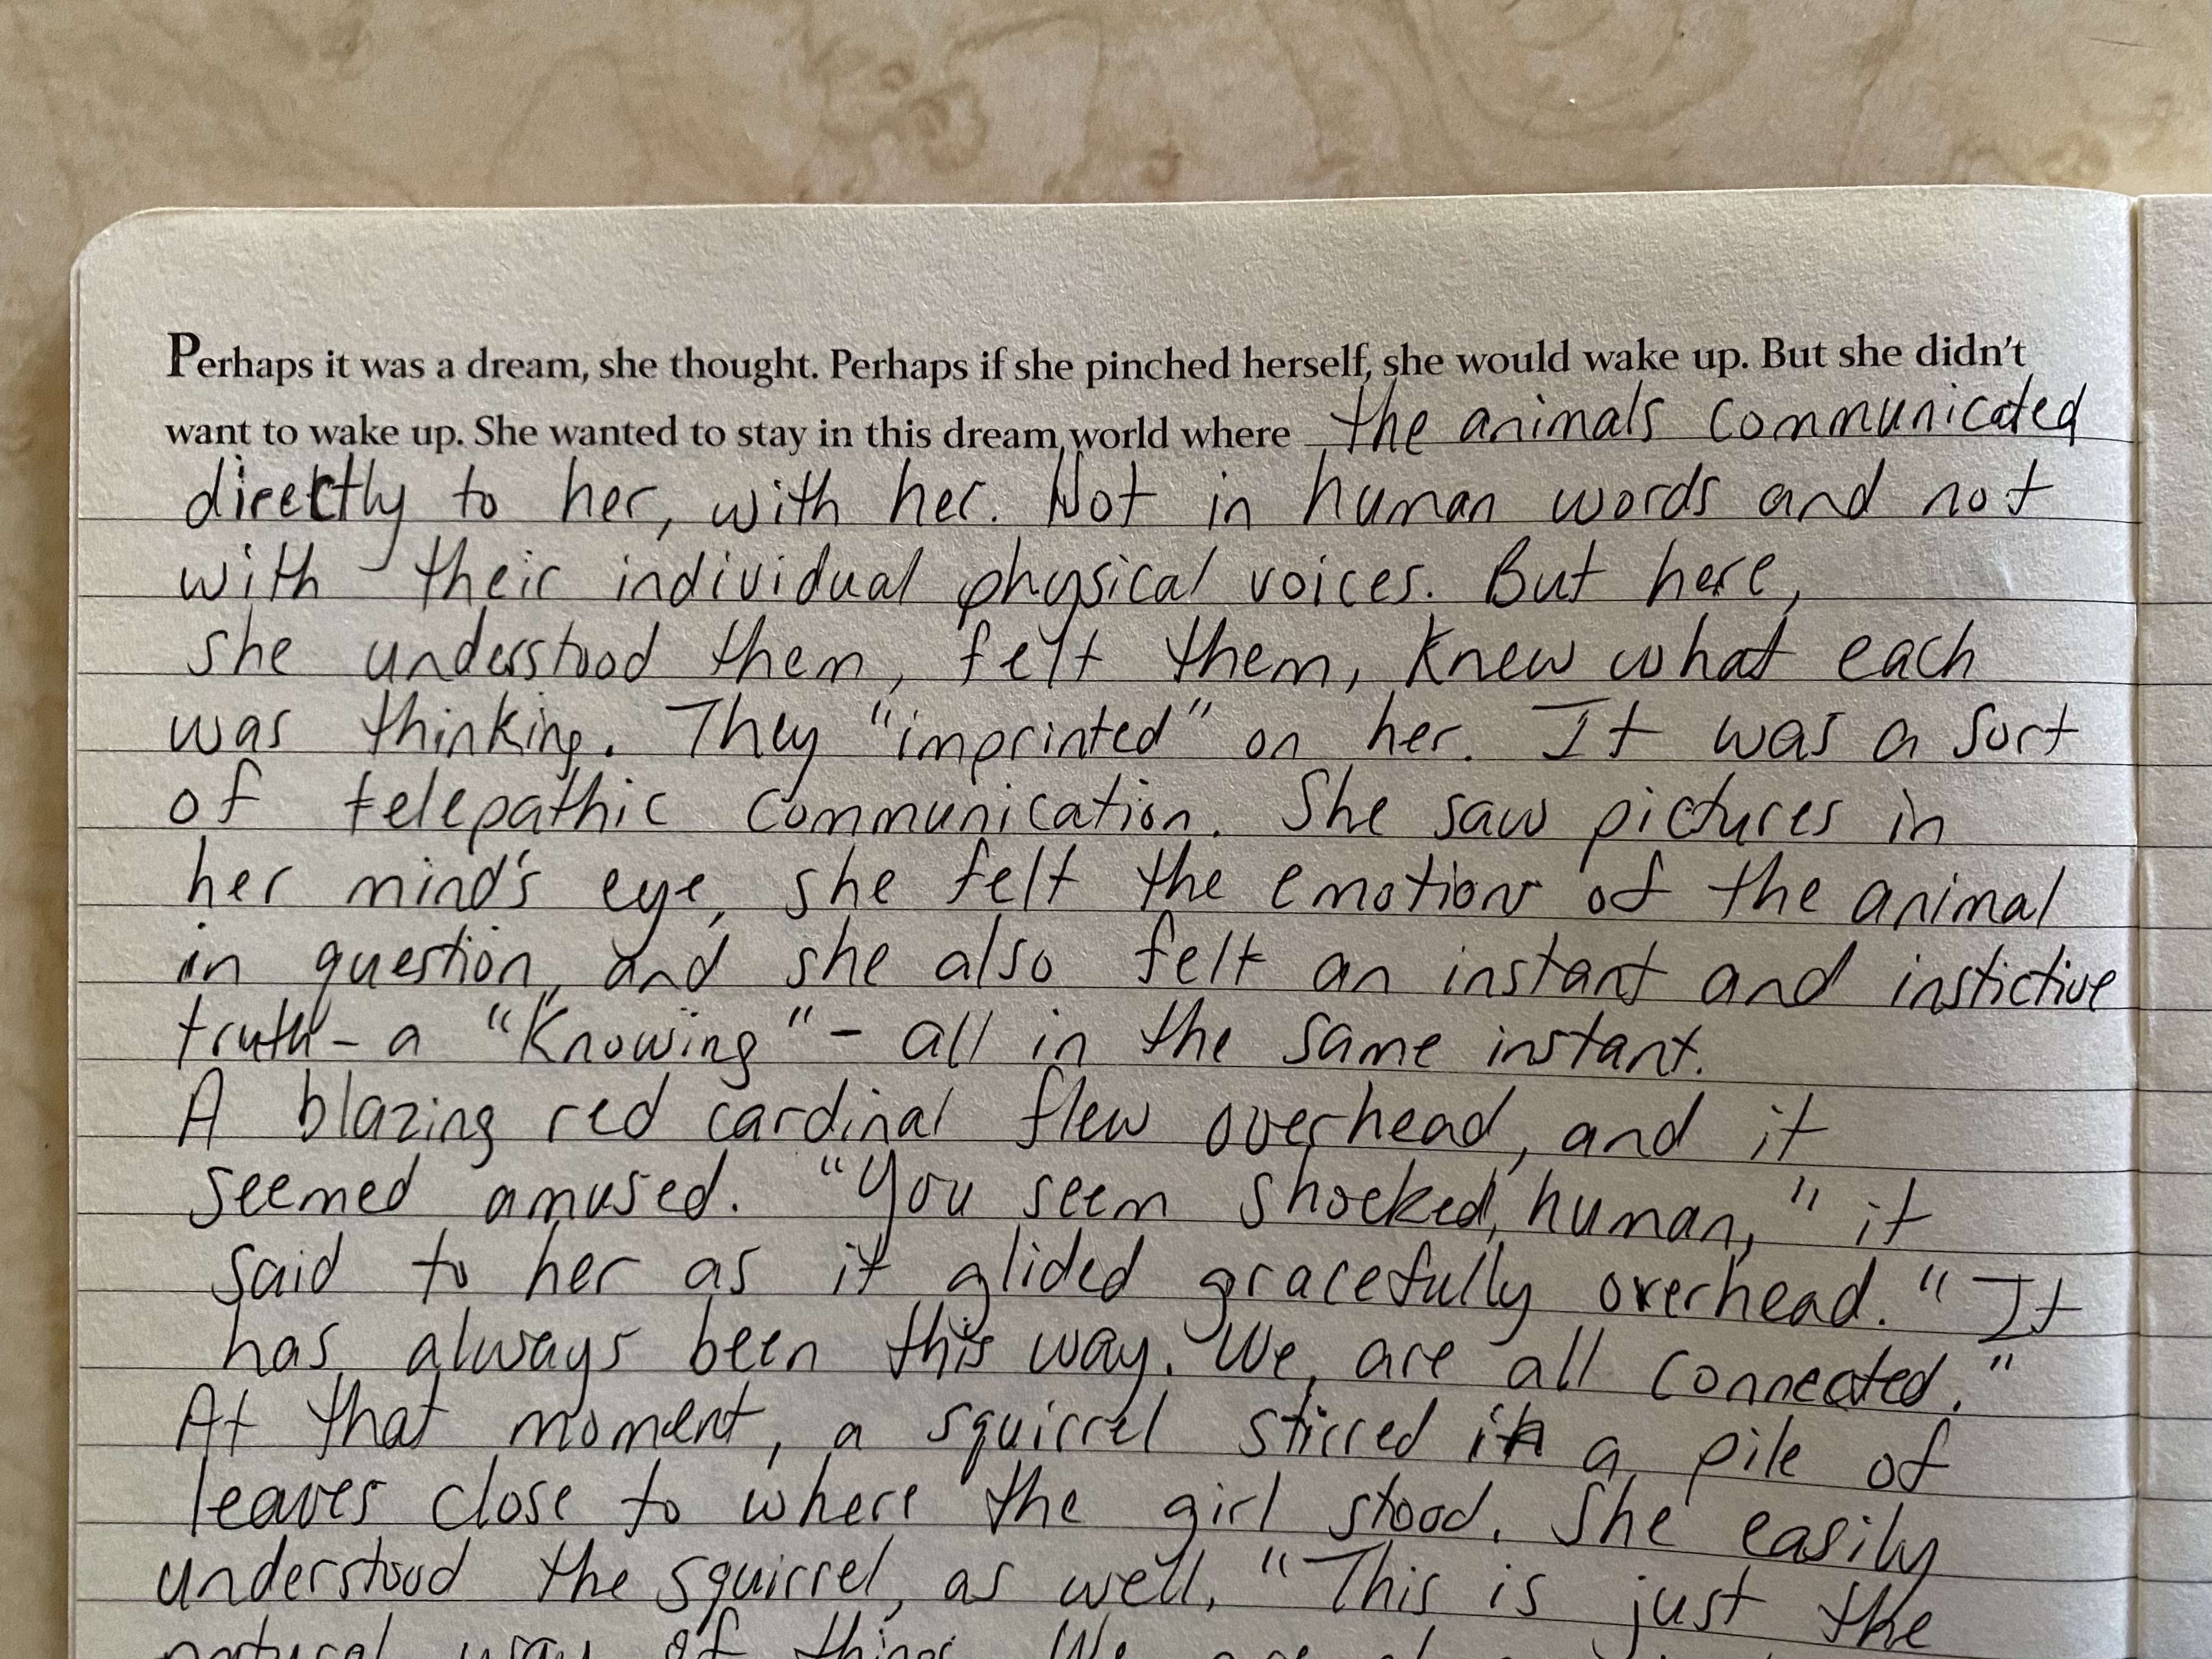 Perhaps it was a dream, she thought. Perhaps if she pinched herself, she would wake up. But she didn't
want to wake up. She wanted to stay in this dream world where the animals communicated
directly to her, with her. Not in human words and not
with their individual physical voices. But here,
she understood them, felt them, knew what each
was thinking. They "imprinted" on her. It was a sort
of telepathic communication. She saw pictures in
her mind's eye, she felt the emotions of the animal
in question, and she also felt an instant and instictive
truth - a "Knowing" - all in the same instant.
A blazing red cardinal flew overhead, and it
seemed amused. "You seem shocked, human," it
said to her as it glided gracefully overhead. "It
has always been this way. We are all connected."
At that moment, a squirrel stirred in a pile of
leaves close to where the girl stood. She easily
understood the squirrel, as well. "This is just the
natural way of things. We are